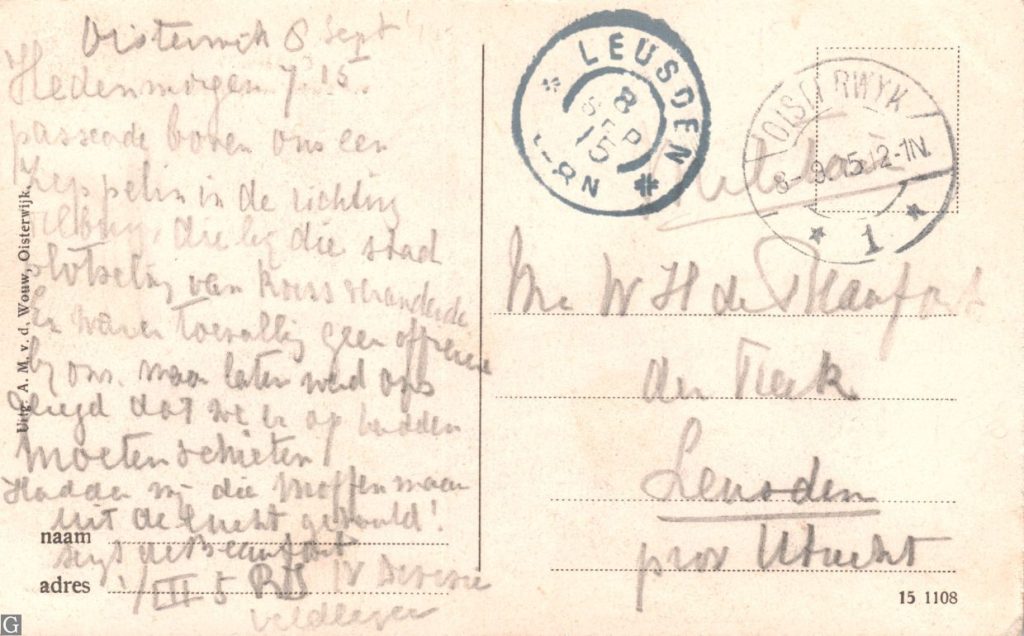 Oisterwijk 8 Sept
Hedenmorgen 7.15
passeerde boven ons een
Zeppelin in de richting
Tilburg, die bij die stad
plotseling van koers veranderde
Er waren toevallig geen officieren
bij ons. maar later werd ons
gezegd dat we er op hadden
moeten schieten!
Hadden wij die Moffen maar
uit de lucht gehaald!
Serg. de Beaufort
III 5 RI IV Divisie
Veldleger
naam
adres
Uitg. A. M. v. d. Wouw, Oisterwijk.
LEUSDEN
8
SEP
15
-8N
OISTERWYK
8-9.15.12-1N.
1
Militair
Mr W H de Beaufort
den Treek
Leusden
prov Utrecht
15 1108
G